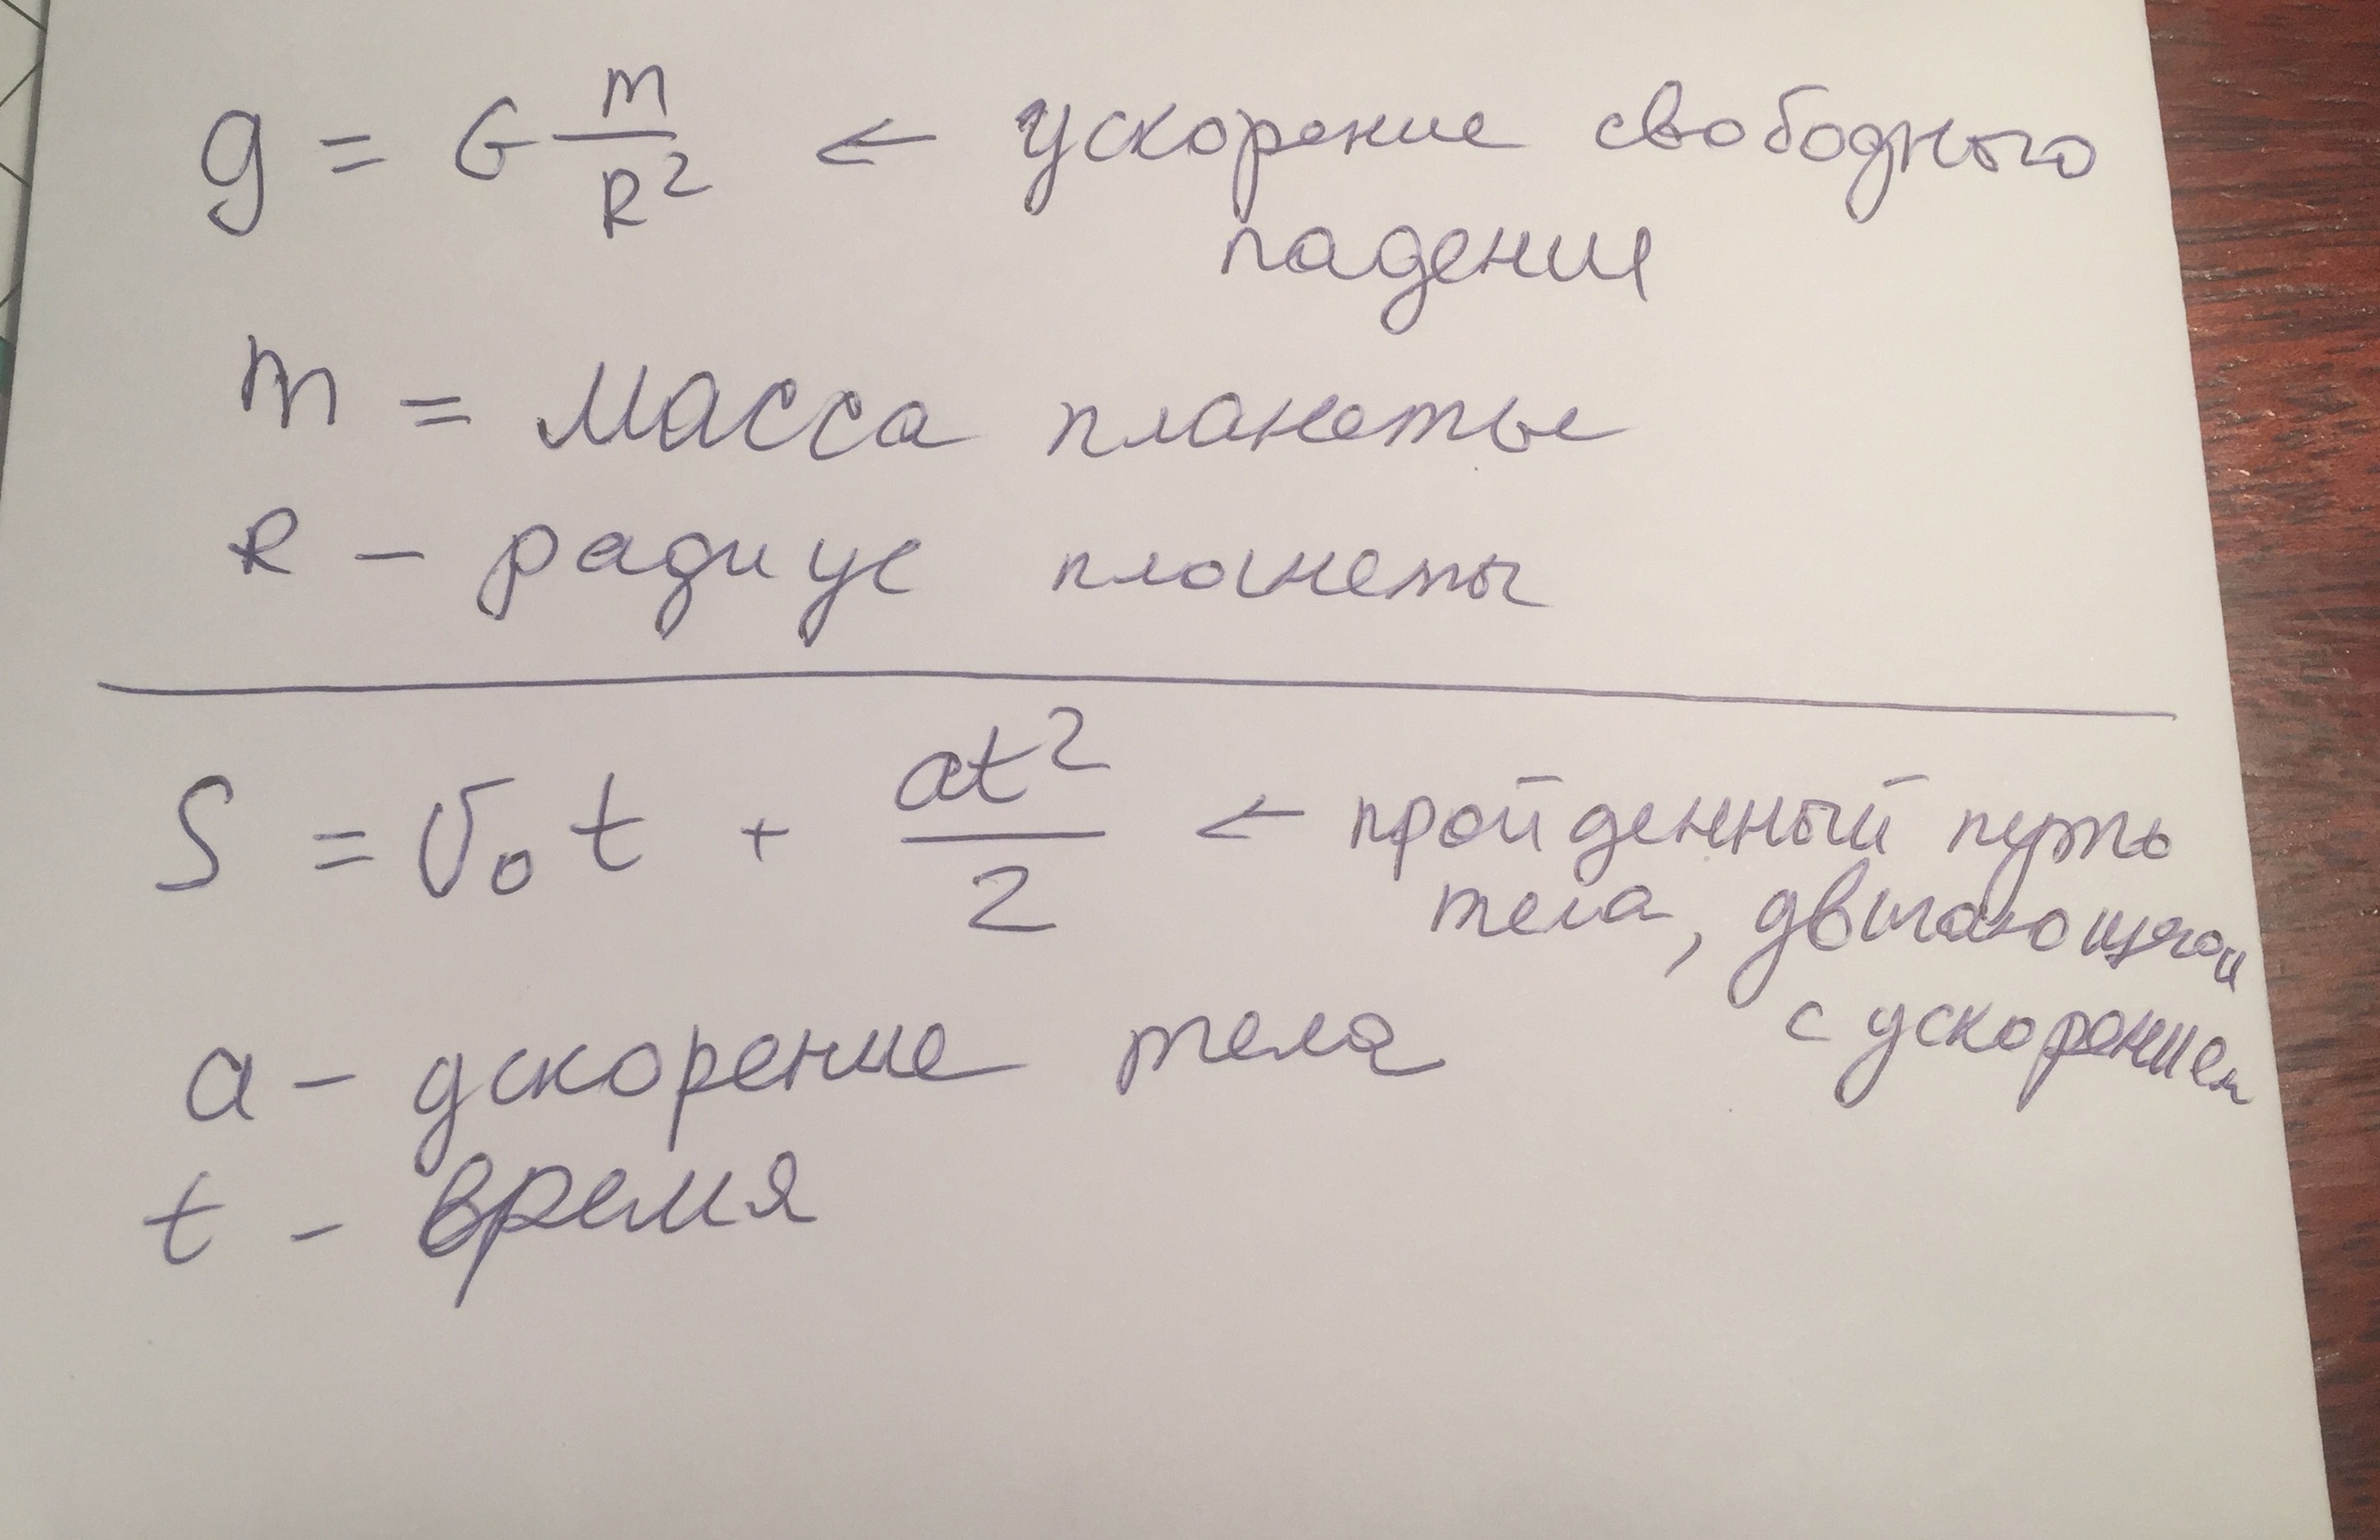 g = G m/R² ← ускорение свободного
падения
m = масса планеты
R – радиус планеты
S = v₀t + at²/2 ← пройденный путь
тела, двигающегося
с ускорением
a – ускорение тела
t – время